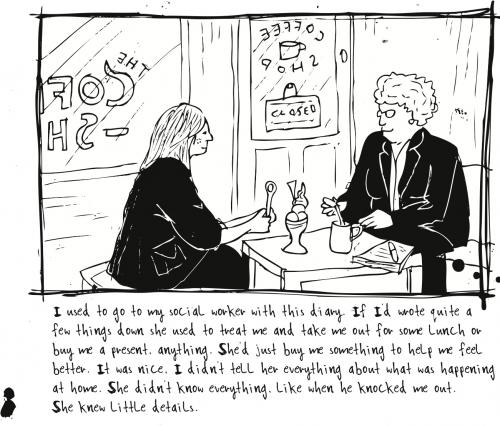 THE
COFF
-SH
COFFEE
SHOP
CLOSED
I used to go to my social worker with this diary. If I'd wrote quite a
few things down she used to treat me and take me out for some lunch or
buy me a present, anything. She'd just buy me something to help me feel
better. It was nice. I didn't tell her everything about what was happening
at home. She didn't know everything. Like when he knocked me out.
She knew little details.